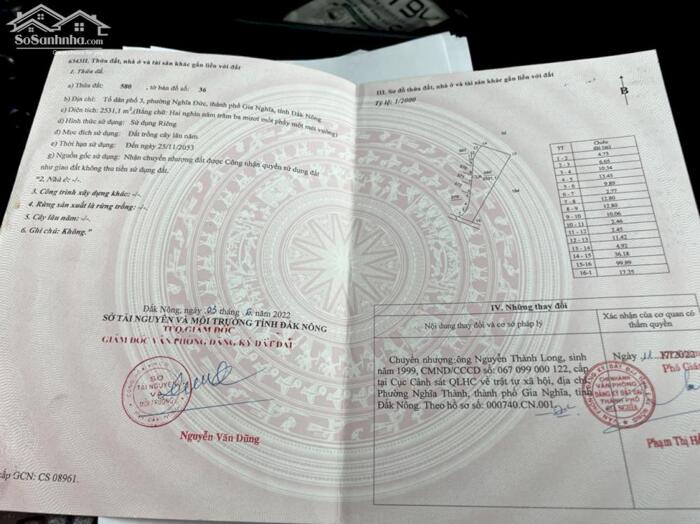 SoSanhnha
.com
63431II. Thửa đất, nhà ở và tài sản khác gắn liền với đất
1. Thửa đất:
a) Thửa đất: 580 , tờ bản đồ số: 36
b) Địa chỉ: Tổ dân phố 3, phường Nghĩa Đức, thành phố Gia Nghĩa, tỉnh Đắk Nông
c) Diện tích: 2531,1 m², (Bằng chữ: Hai nghìn năm trăm ba mươi mốt phẩy một mét vuông)
d) Hình thức sử dụng: Sử dụng Riêng
đ) Mục đích sử dụng: Đất trồng cây lâu năm
e) Thời hạn sử dụng: Đến ngày 25/11/2053
g) Nguồn gốc sử dụng: Nhận chuyển nhượng đất được Công nhận quyền sử dụng đất
như giao đất không thu tiền sử dụng đất.
"2. Nhà ở: -/-.
3. Công trình xây dựng khác: -/-.
4. Rừng sản xuất là rừng trồng: -/-.
5. Cây lâu năm: -/-.
6. Ghi chú: Không."
Đắk Nông, ngày 03 tháng 6 năm 2022
SỞ TÀI NGUYÊN VÀ MÔI TRƯỜNG TỈNH ĐẮK NÔNG
TUQ.GIÁM ĐỐC
GIÁM ĐỐC VĂN PHÒNG ĐĂNG KÝ ĐẤT ĐAI
SỞ
TÀI NGUYÊN
VÀ
MÔI TRƯỜNG
Nguyễn Văn Dũng
cấp GCN: CS 08961.
III. Sơ đồ thửa đất, nhà ở và tài sản khác gắn liền với đất
Tỷ lệ: 1/2000
B
TT Chiều dài (m)
1 - 2 4.73
2 - 3 6.65
3 - 4 10.54
4 - 5 13.45
5 - 6 9.89
6 - 7 2.77
7 - 8 12.80
8 - 9 12.80
9 - 10 10.06
10 - 11 2.46
11 - 12 2.45
12 - 13 11.42
13 - 14 4.92
14 - 15 36.18
15-16 99.89
16-1 17.35
IV. Những thay đổi
Nội dung thay đổi và cơ sở pháp lý
Xác nhận của cơ quan có
thẩm quyền
Chuyển nhượng:ông Nguyễn Thành Long, sinh
năm 1999, CMND/CCCD số: 067 099 000 122, cấp
tại Cục Cảnh sát QLHC về trật tự xã hội, địa chỉ:
Phường Nghĩa Thành, thành phố Gia Nghĩa, tỉnh
Đắk Nông. Theo hồ sơ số: 000740.CN.001.
Ngày 11
Phó Giám
CHI NHÁNH
VĂN PHÒNG
ĐĂNG KÝ ĐẤT ĐAI
THÀNH PHỐ
GIA NGHĨA
Phạm Thị